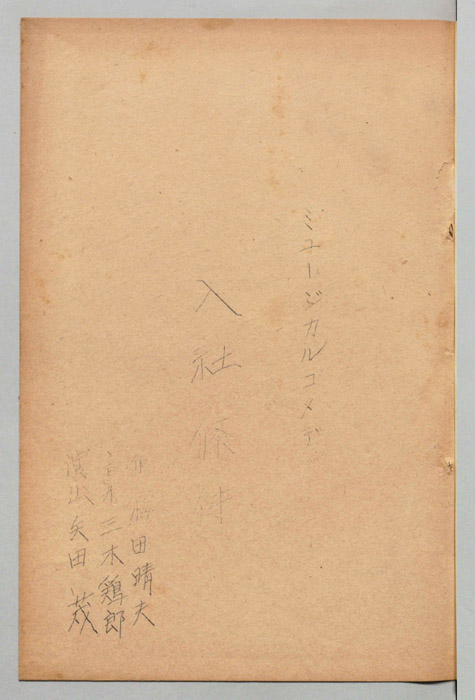 ミュージカルコメデ
入社條件
作 飯田晴夫
音楽 三木鶏郎
演出 矢田茂